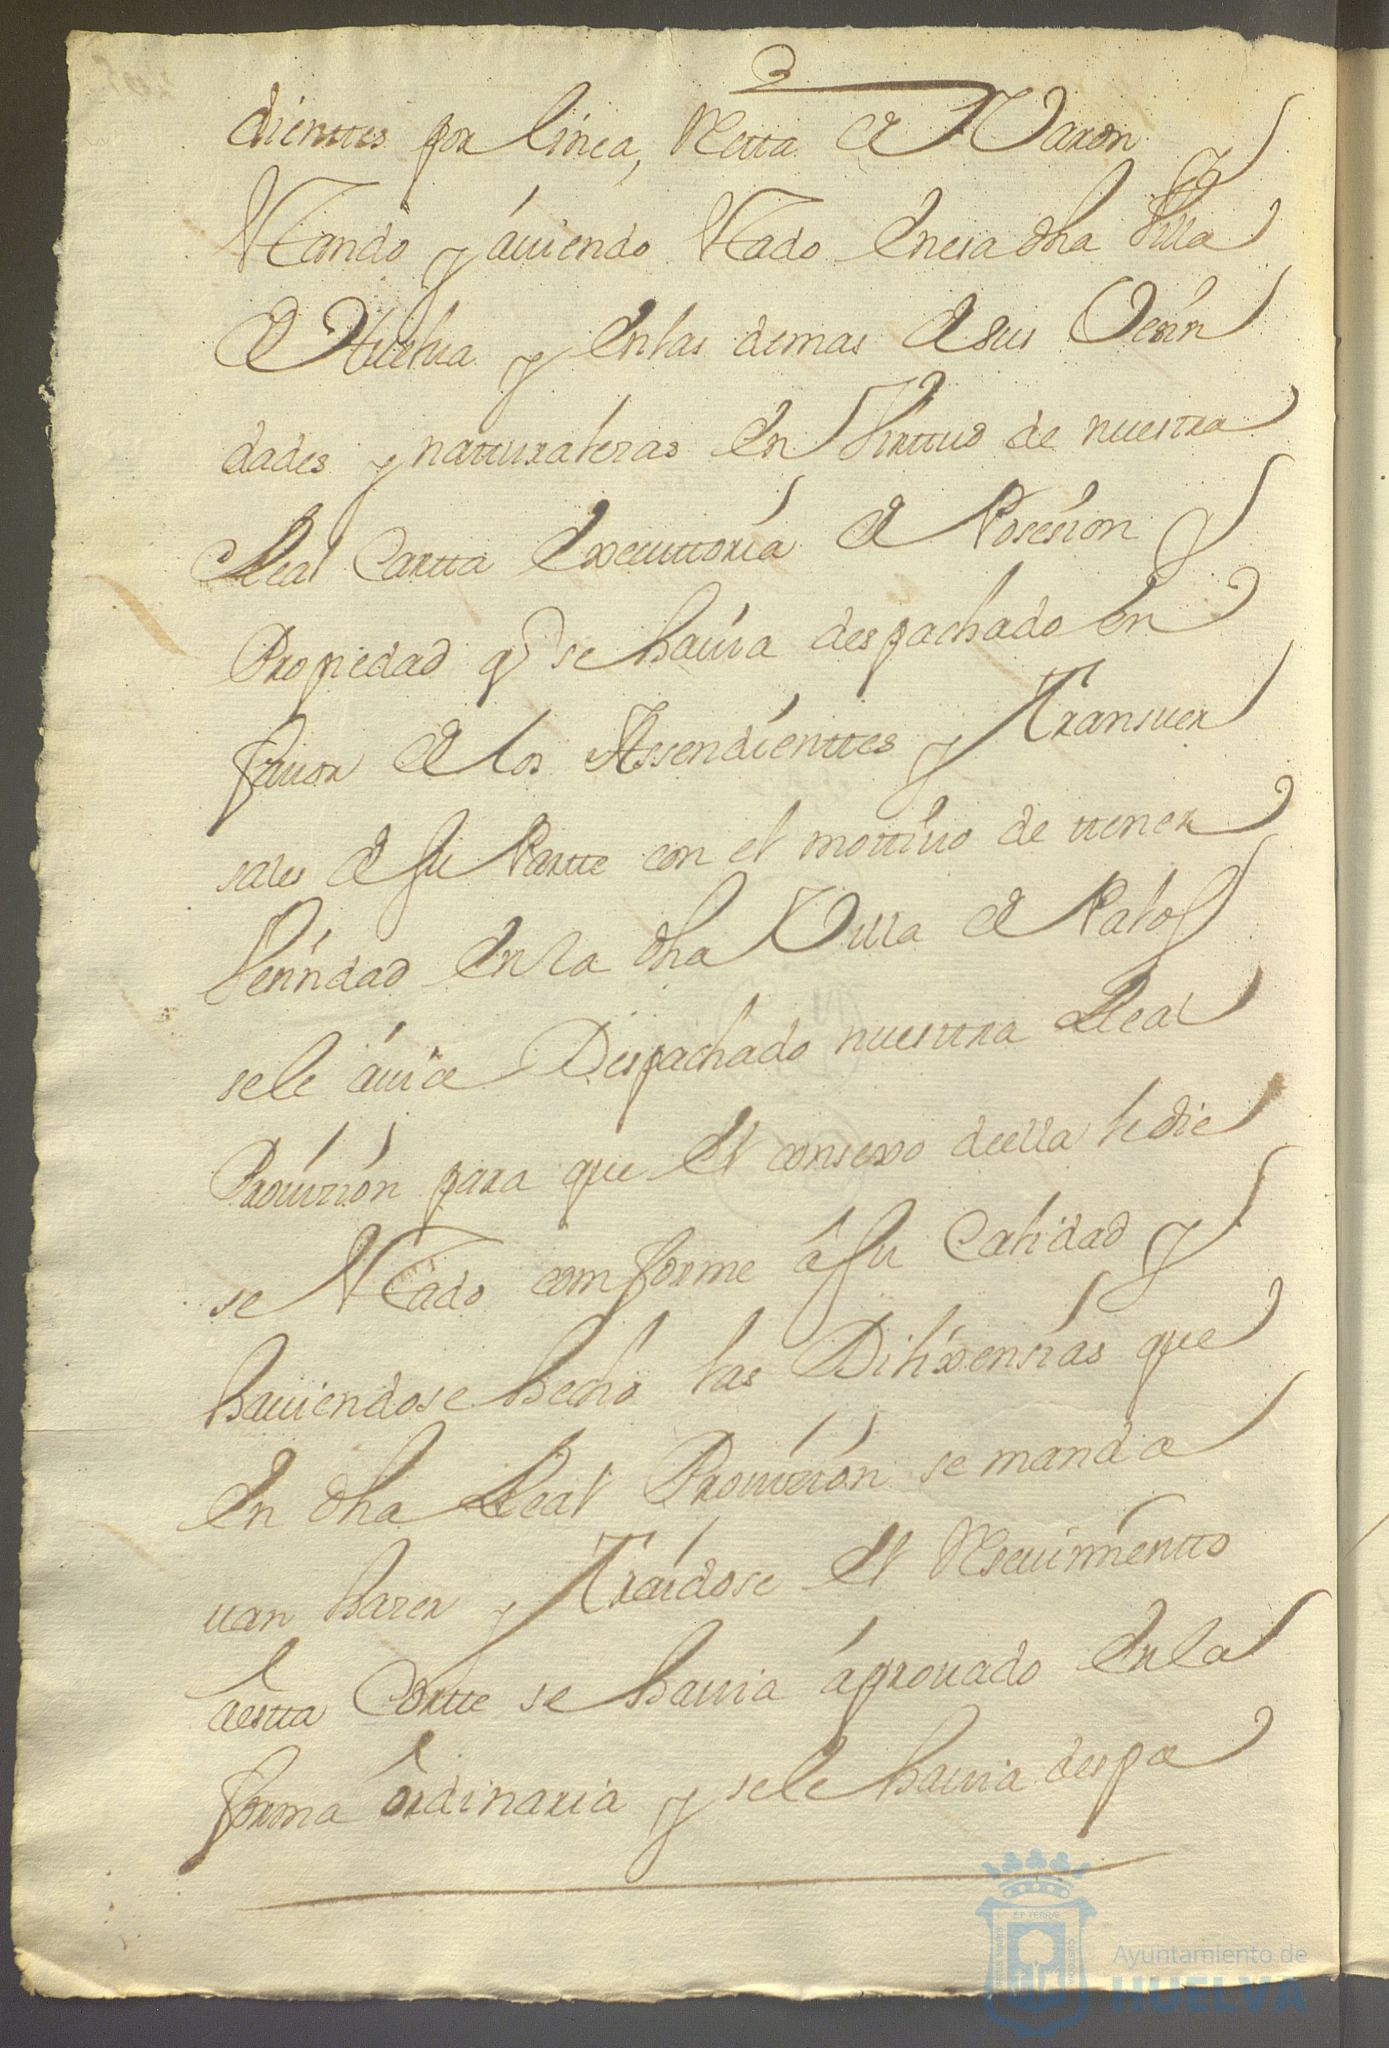 dienttes por linea, Retta de Varon y
Stando y auiendo Stado Enesa dha Villa
de Huelua y Enlas demas de sus Vecin
dades y natturalezas En Virttud de nuestra
Real Cartta Executtoria de Posesion y
Propiedad q̃ se hauia despachado en
fauor de los Assendienttes y Transuer
sales de su Partte con el mottiuo de ttener
Vecindad En la dha Villa de Palos
sele auia Despachado nuesttra Real
Prouizion para que El consexo deella le die
se Stado comforme â su Calidad y
hauiendose hecho las Dilixensias que
En dha Real Prouizion se manda
uan hazer y Traidose El Reseuimientto
aestta Cortte se hauia áprouado En la
forma ôrdinaria y sele hauia despa
Ayuntamiento de
HUELVA